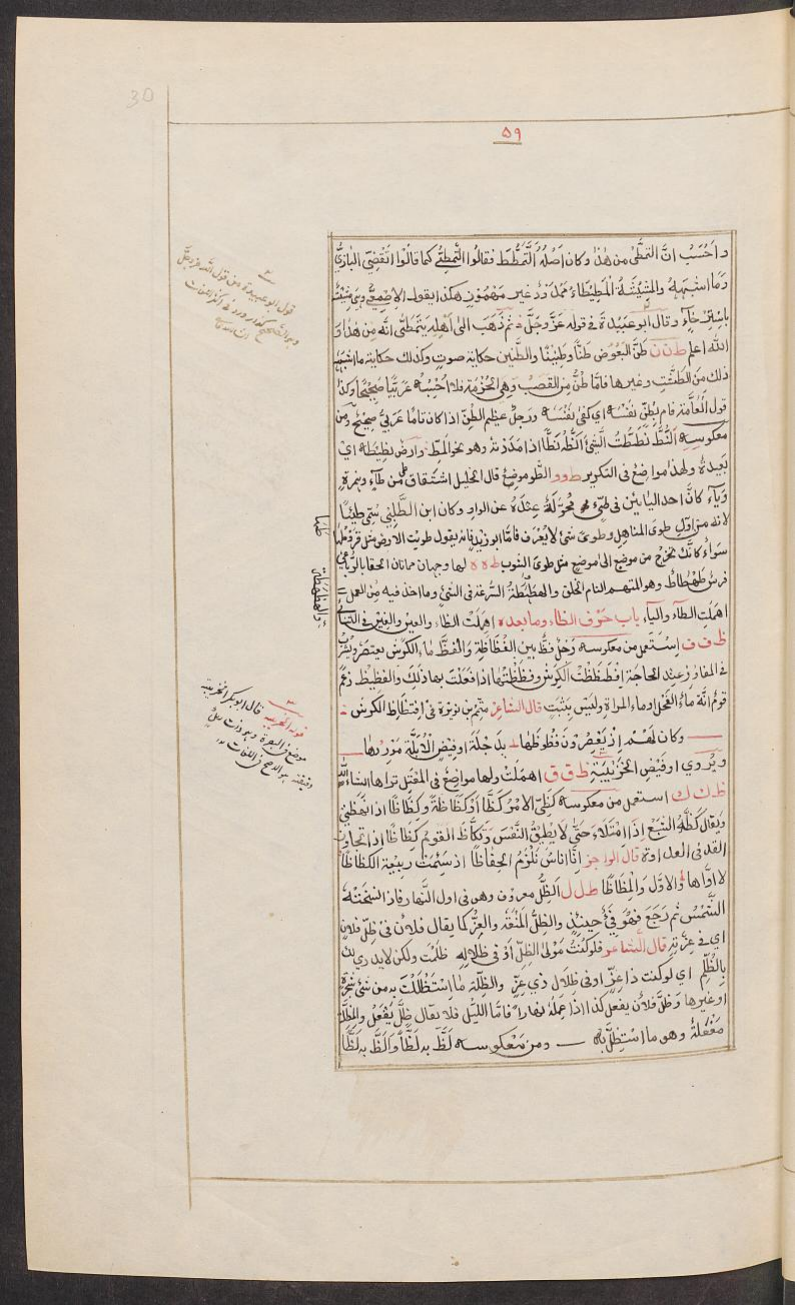 30
٥٩
واحسَبُ انَّ التمطّى من هٰذا وكان اَصْلُهُ التَّمَطُّطَ فقالُوا التَّمطّى كما قالُوا اتَقَضّى البازىُّ
وَمَا اشبَهَهُ والمِشْيَةُ المُطَيْطَاءُ مَمْدُودٌ غير مهْمُوزٍ هكذا يقول الاصْمَعِىُّ وهى مِشْيَةٌ
باسْتِرْخَاءٍ وقال ابو عُبَيْدة فى قوله عزّ وجلّ ثم ذَهَبَ الى اَهْلِه يَتَمَطّى انّه من هٰذا وَ
الله اعلم ط ن ن طَنَّ البَعُوض طَنًّا وطَنِينًا والطَّنِين حكاية صوتٍ وكذلك حكاية ما اشبَهَ
ذلك مِنَ الطَّسْتِ وغيرها فامّا طُنٌّ من القَصَب وهى الحُزْمَة فلا اَحْسِبُه عَربيًّا صَحِيحًا وكذا
قول العامَّة قام بِطُنِّ نَفْسِه اى كفَى نَفْسَه ورجلٌ عظيم الطُّنّ اذا كان تامًّا عربىٌّ صحيحٌ ومن
معكوسه النَّطُّ نَطَطْتُ الشَّىْءَ اَنُطُّه نَطًّا اذا مَدَدْتَهُ وهو نحو المَطّ وارضٌ نطيطة اى
بَعِيدَةٌ ولهذا مواضعُ فى التكرير ط و و الطَّو موضعٌ قال الخليل اشتقاق طىّ من طَآءٍ وهمزةٍ
وَيَآءٍ كانَّ احد اليائين فى طيّئ مُحَوَّلَةٌ عِنْدَهُ عن الواو وكان ابن الكَلْبى سُمّى طيّئًا
لانّه من اوّل طوى المناهل وطوىً شئٌ لا يُعْرَف فامّا ابو زيد فانه يقول طويت الارض مثل قرَوتُها
سوآءٌ كانّك تخرج من موضع الى موضع مثل طوىّ الثوب ط ه ه لها وجهان مماتان الحقا بالرباعى
فرسٌ طَهْطَاهٌ وهو المتهم التام الخلق والهَطْهَطَةُ السرعة فى المشى وما اخذ فيه من العمل
اهملت الطآء واليآء باب حَرْف الظاء وما بعده اهملت الظاء والعين والغين فى الثنائى
ظ ف ف اِسْتُعمل من معكوسه رَجُلٌ فظٌّ بيّن الفَظَاظَة وَالفَظّ ماءُ الكَرِش يعتصر ويُشرَبُ
فى المفاوز عند الحاجَة اِفْتَظَظْتُ الكَرِش وفَظَظْتُها اذا فعَلْتَ بها ذلك والفظيظ زعَمَ
قومٌ انّه ماءُ الفَحْل او ماء المراة وليس بثَبَتٍ قال الشاعر متمم بن نويرة فى افتظاظ الكرش
وكان لَهُمْ اِذ يَعْصِرُونَ فُظُوظَهَا بِدَجْلَةَ او فَيْضِ الاُبُلَّةِ مَوْرِدُها
ويُروى او فيض الخُرَيْبَةِ ظ ق ق اهملت ولها مواضع فى المعْتلّ تراها انشاء الله
ظ ك ك استعمل من معكوسه كَظَّنى الامْرُ كَظًّا اَوْ كَظَاظَةً وكِظَاظًا اذا بَهَظَنى
ويقال كَظَّهُ الشِبَعُ اِذَا امْتَلَاءَ حَتّٰى لَا يُطِيقُ النَّفَسَ وتَكاظَّ القومُ كِظَاظًا اذا تجاوزوا
القدر فى العداوة قال الراجز اِنّا اُناسٌ نَلْزَمُ الحِفَاظَا اذ سَئِمَتْ ربيعة الكظاظَا
لا اوّاها والاوّل وَالمِظَاظَا ظ ل ل الظِّلّ معروف وهو فى اول النَّهار فاذا نسَخَتْهُ
الشَّمْسُ ثم رَجَعَ فهُوَ فَىْءٌ حِينئِذٍ والظِلُّ المَنْعَةُ والعِزُّ كما يقال فلانٌ فى ظلِّ فلانٍ
اى فى عِزّه قال الشاعر فلو كنتُ مَوْلَى الظلِّ اَوْ فى ظلالِهِ ظلمتُ ولكن لا يدى لك
بِالظُّلْمِ اى لو كنت ذا عِزٍّ او فى ظِلال ذى عزٍّ والظُّلّة ما اسْتَظْلَلْتَ به من شئ شجرةٍ
او غيرها وَظَلَّ فلان يفعل كذا اذا عمِلهُ نهارًا فامّا الليل فلا يقال ظَلَّ يَفْعَلُ والمِظَلَّة
مِفْعَلَةٌ وهو ما اسْتُظِلَّ به ومن معكوسه لَظَّ بِه لَظًّا وَاَلَظَّ به لَظًّا
قول ابو عبيدة من قول الله عز وجل
قوله الخريبة قال ابو بكر الخريبة
موضع فى البصرة